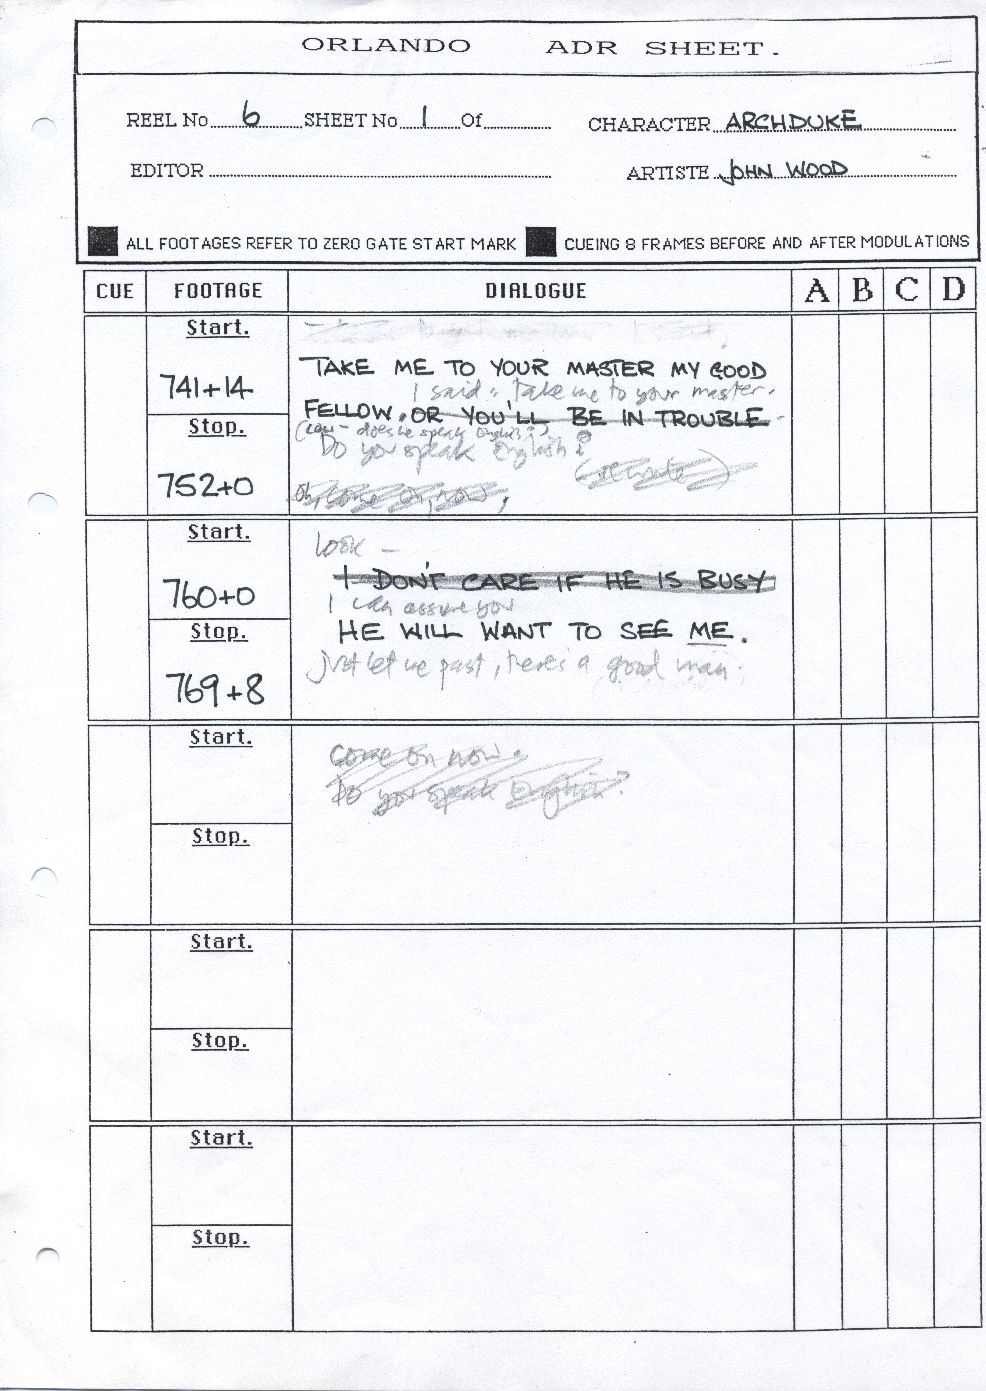 ORLANDO ADR SHEET.
REEL No 6 SHEET No 1 Of
CHARACTER ARCHDUKE
EDITOR
ARTISTE JOHN WOOD
ALL FOOTAGES REFER TO ZERO GATE START MARK CUEING 8 FRAMES BEFORE AND AFTER MODULATIONS
CUE FOOTAGE DIALOGUE A B C D
Start.
741+14
Stop.
752+0
TAKE ME TO YOUR MASTER MY GOOD
I said: take me to your master.
FELLOW. OR YOU'LL BE IN TROUBLE
does he speak English?
Do you speak English?
Start.
760+0
Stop.
769+8
Look —
I DON'T CARE IF HE IS BUSY
I can assure you
HE WILL WANT TO SEE ME.
Just let me past, there's a good man.
Start.
Stop.
Come on now.
Do you speak English?
Start.
Stop.
Start.
Stop.